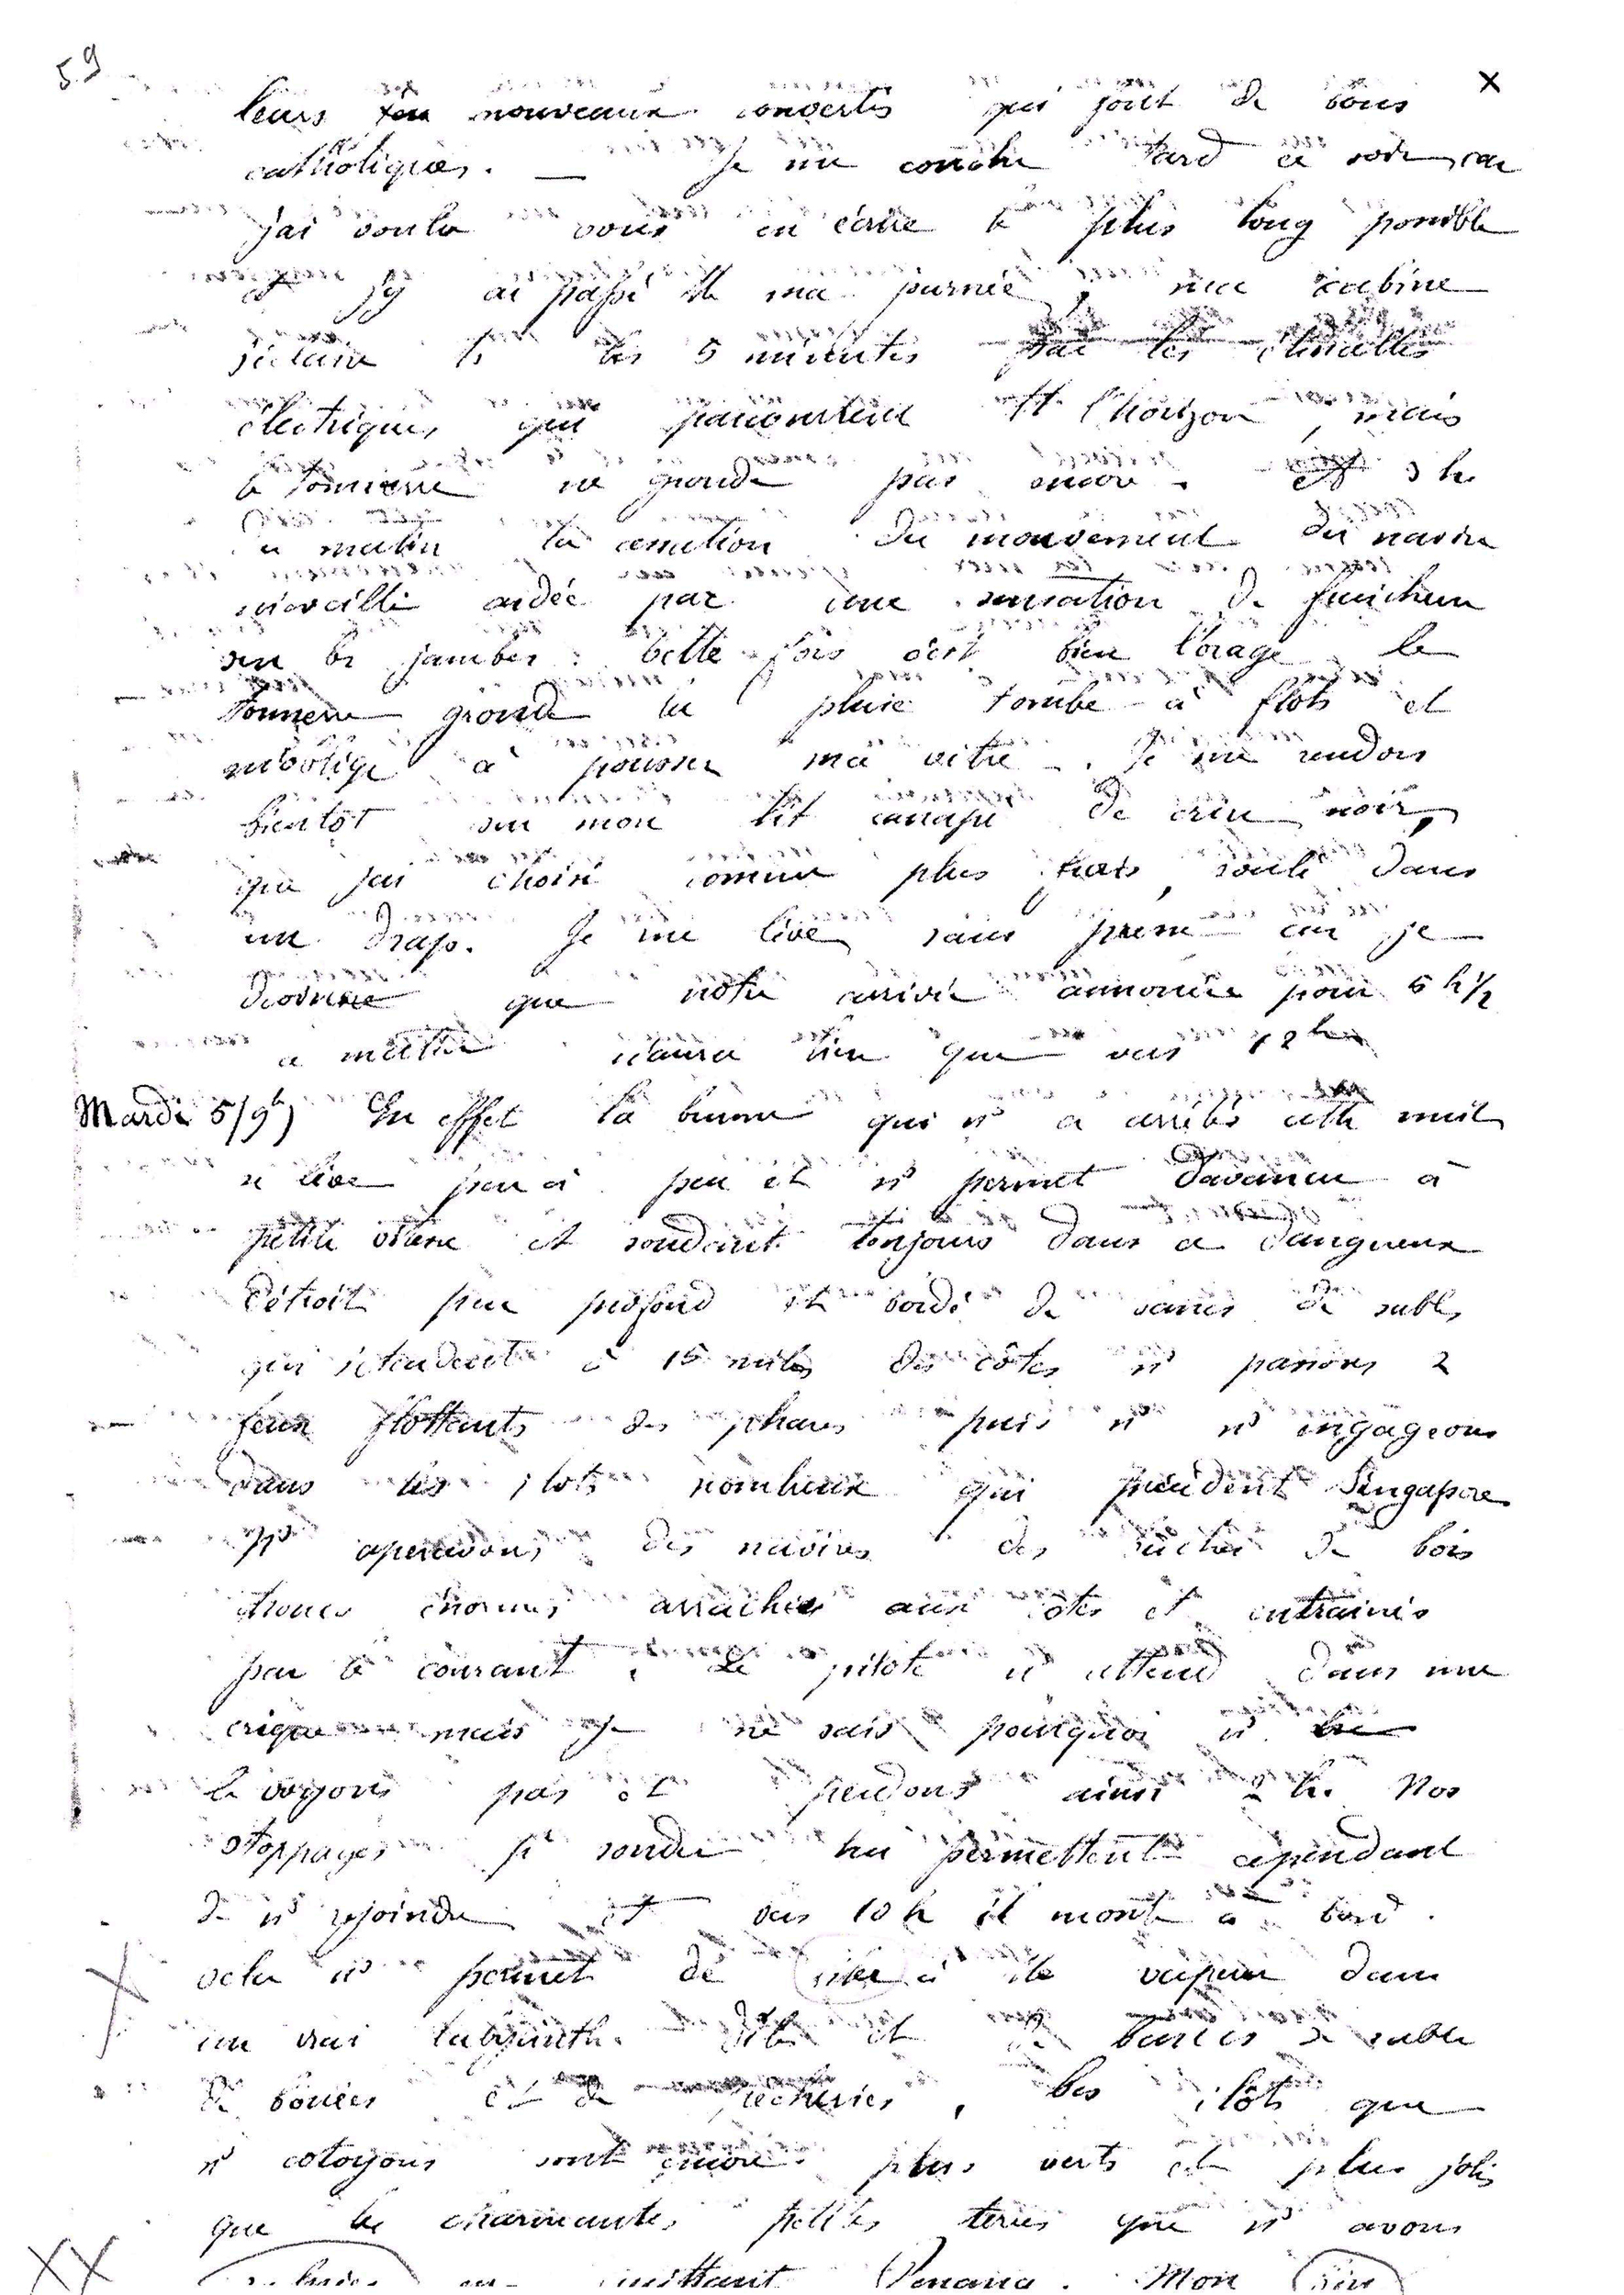 59
leurs nouveaux convertis qui font de bons X
catholiques. — Je me couche tard ce soir, car
j'ai voulu vous en écrire le plus long possible
et j'y ai passé tte ma journée, ma cabine
s'éclaire ts les 5 minutes par les étincelles
électriques qui parcourent tt l'horizon, mais
le tonnerre ne gronde pas encore. 3 h.
ce matin la cessation du mouvement du navire
m'éveille aidée par une sensation de fraicheur
sur les jambes : cette fois c'est bien l'orage, le
tonnerre gronde la pluie tombe à flots et
m'oblige à pousser ma vitre. Je me rendors
bientôt sur mon lit canapé de crin noir,
que j'ai choisi comme plus frais, roulé dans
un drap. Je me lève sans presse car je
devine que notre arrivée annoncée pour 5 h ½
ce matin n'aura lieu que vers 12 h
Mardi 5/9b) En effet la brume qui ns a arrêtés cette nuit
se lève peu à peu et ns permet d'avancer à
petite vitesse et sondant toujours dans ce dangereux
détroit peu profond et bordé de bancs de sable,
qui s'étendent à 15 milles des côtes ns passons 2
feux flottants des phares puis ns ns engageons
dans les ilots nombreux qui précèdent Singapore
Ns apercevons des navires des de bois
troncs énormes arrachés aux côtes et entrainés
par le courant. Le pilote ns attend dans une
crique mais je ne sais pourquoi ns
le voyons pas et perdons ainsi 2 h. Nos
stoppages pr sonder lui permettent cependant
de ns rejoindre et vers 10 h il monte à bord.
X cela ns permet de filer à tte vapeur dans
un vrai labyrinthe d'iles et de bancs de sable
de bouées et de pêcheries, les ilôts que
ns cotoyons sont encore plus verts et plus jolis
que les charmantes petites terres que ns avons
XX en quittant Penang. Mon